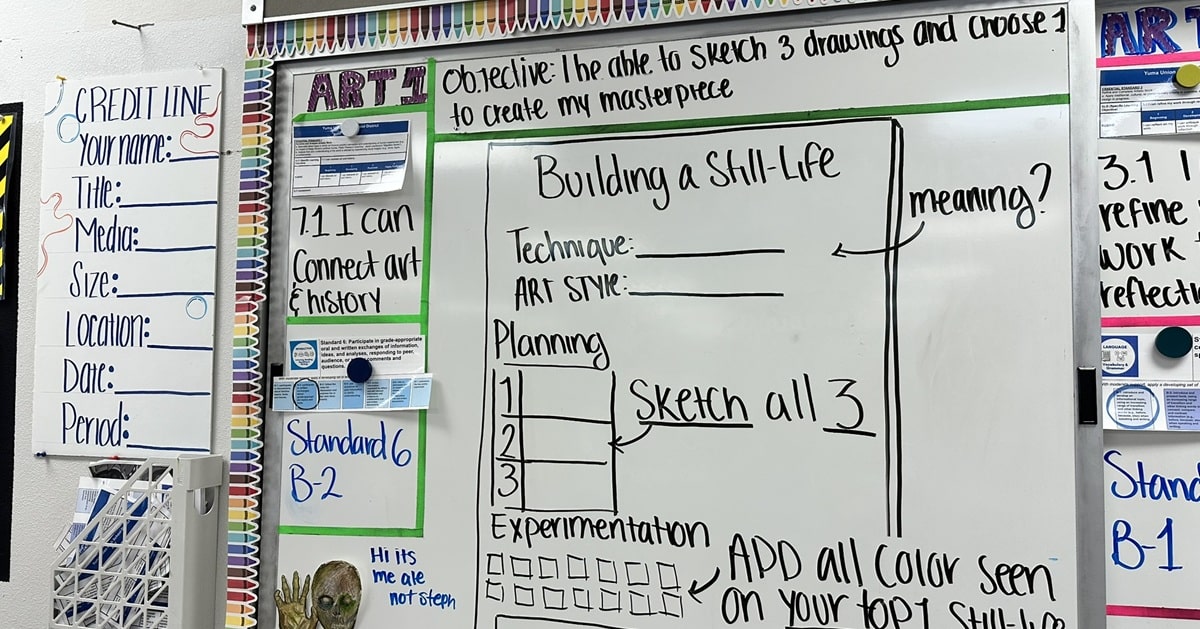 CREDIT LINE
Your name:
Title:
Media:
Size:
Location:
Date:
Period:
ART 1
7.1 I can
Connect art
& history
Standard 6: Participate in grade-appropriate
oral and written exchanges of information,
ideas, and analyses, responding to peer,
audience, comments and
questions.
Standard 6
B-2
Hi its
me ale
not steph
Objective: I be able to sketch 3 drawings and choose 1
to create my masterpiece
Building a Still-Life
Technique:
ART STYLE:
meaning?
Planning
1
2
3
Sketch all 3
Experimentation
ADD all color seen
on your top 1 Still-Life
ART
Yuma Union
3.1 I
refine
work
reflecti
LANGUAGE
Vocabulary
& Grammar
Stand
B-1